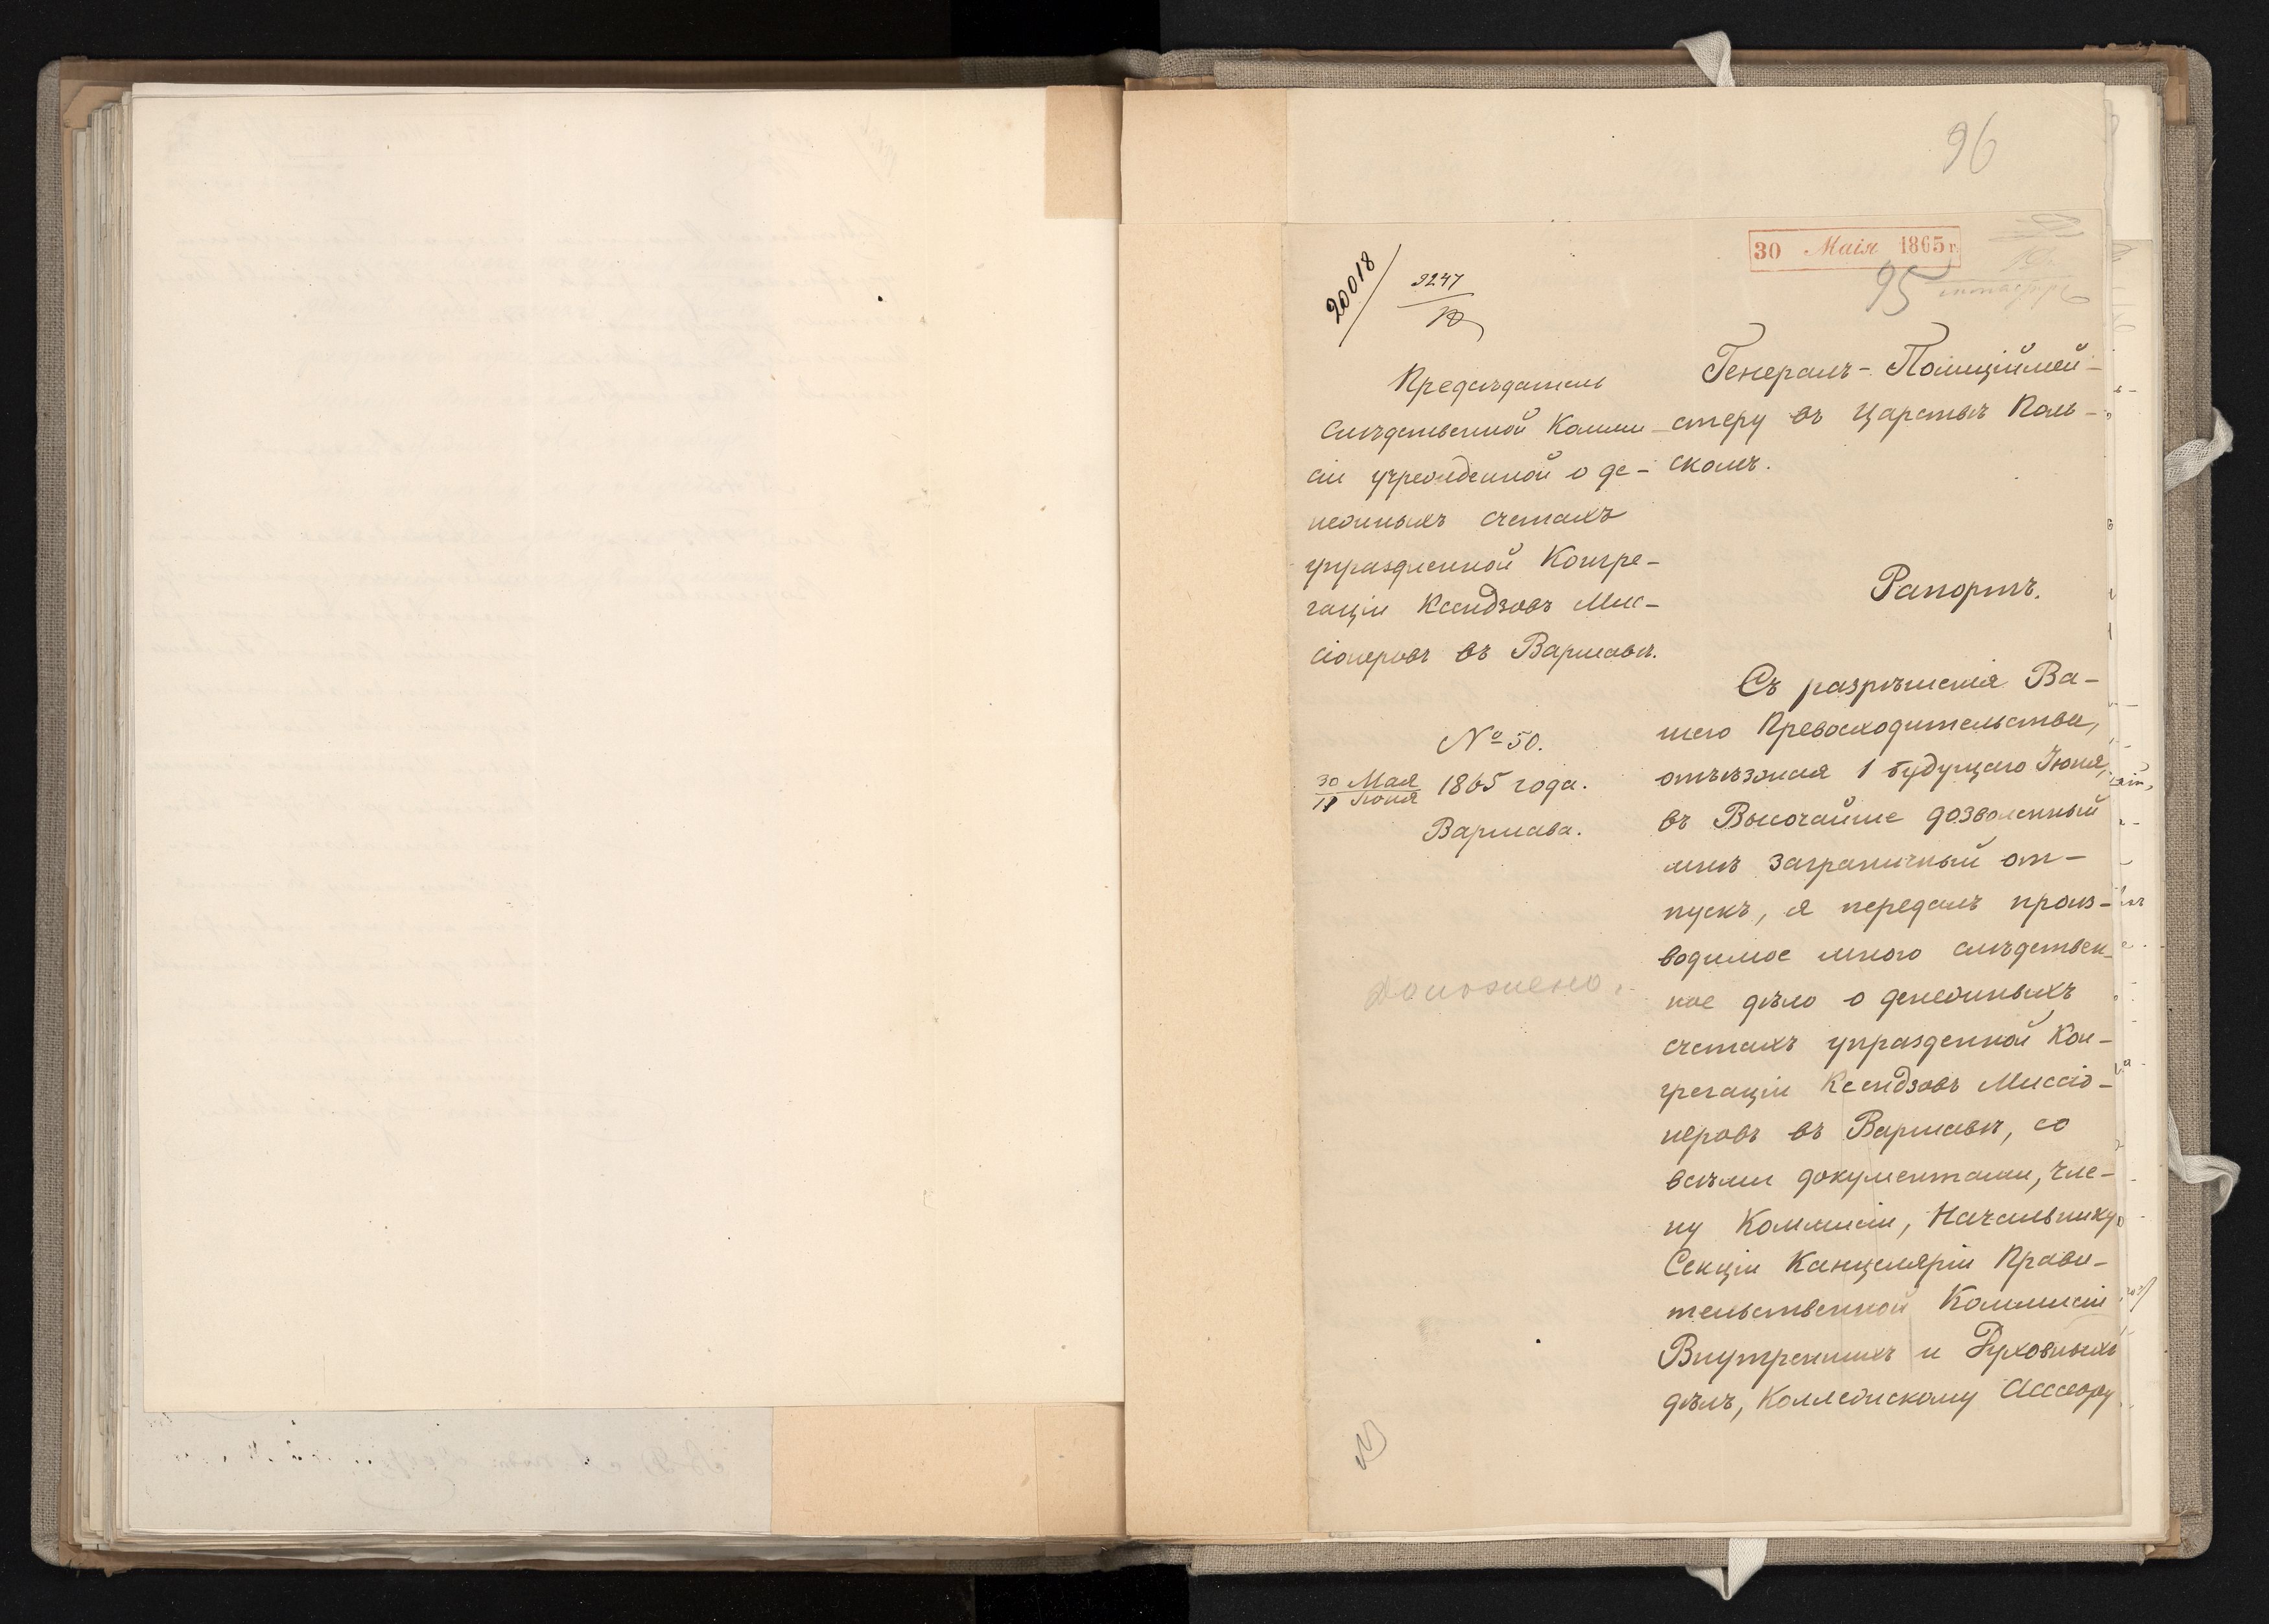 96
30 Маія 1865 г.
95
20018
9247
Предсѣдатель
Слѣдственной Комми-
сіи учрежденной о де-
нежныхъ счетахъ
упраздненной Конгре-
гаціи Ксендзовъ Мис-
сіонеровъ въ Варшавѣ.
№ 50.
30 Мая
11 Іюня 1865 года.
Варшава.
Доложено.
Генералъ-Полиціймей-
стеру въ Царствѣ Поль-
скомъ.
Рапортъ.
Съ разрѣшенія Ва-
шего Превосходительства,
отъѣзжая 1 будущаго Іюня,
въ Высочайше дозволенный
мнѣ заграничный от-
пускъ, я передалъ произ-
водимое мною слѣдствен-
ное дѣло о денежныхъ
счетахъ упразденной Кон-
грегаціи Ксендзовъ Миссіо-
неровъ въ Варшавѣ, со
всѣми документами, Чле-
ну Коммисіи, Начальнику
Секціи Канцеляріи Прави-
тельственной Коммисіи
Внутренихъ и Духовныхъ
дѣлъ, Коллежскому Ассесору